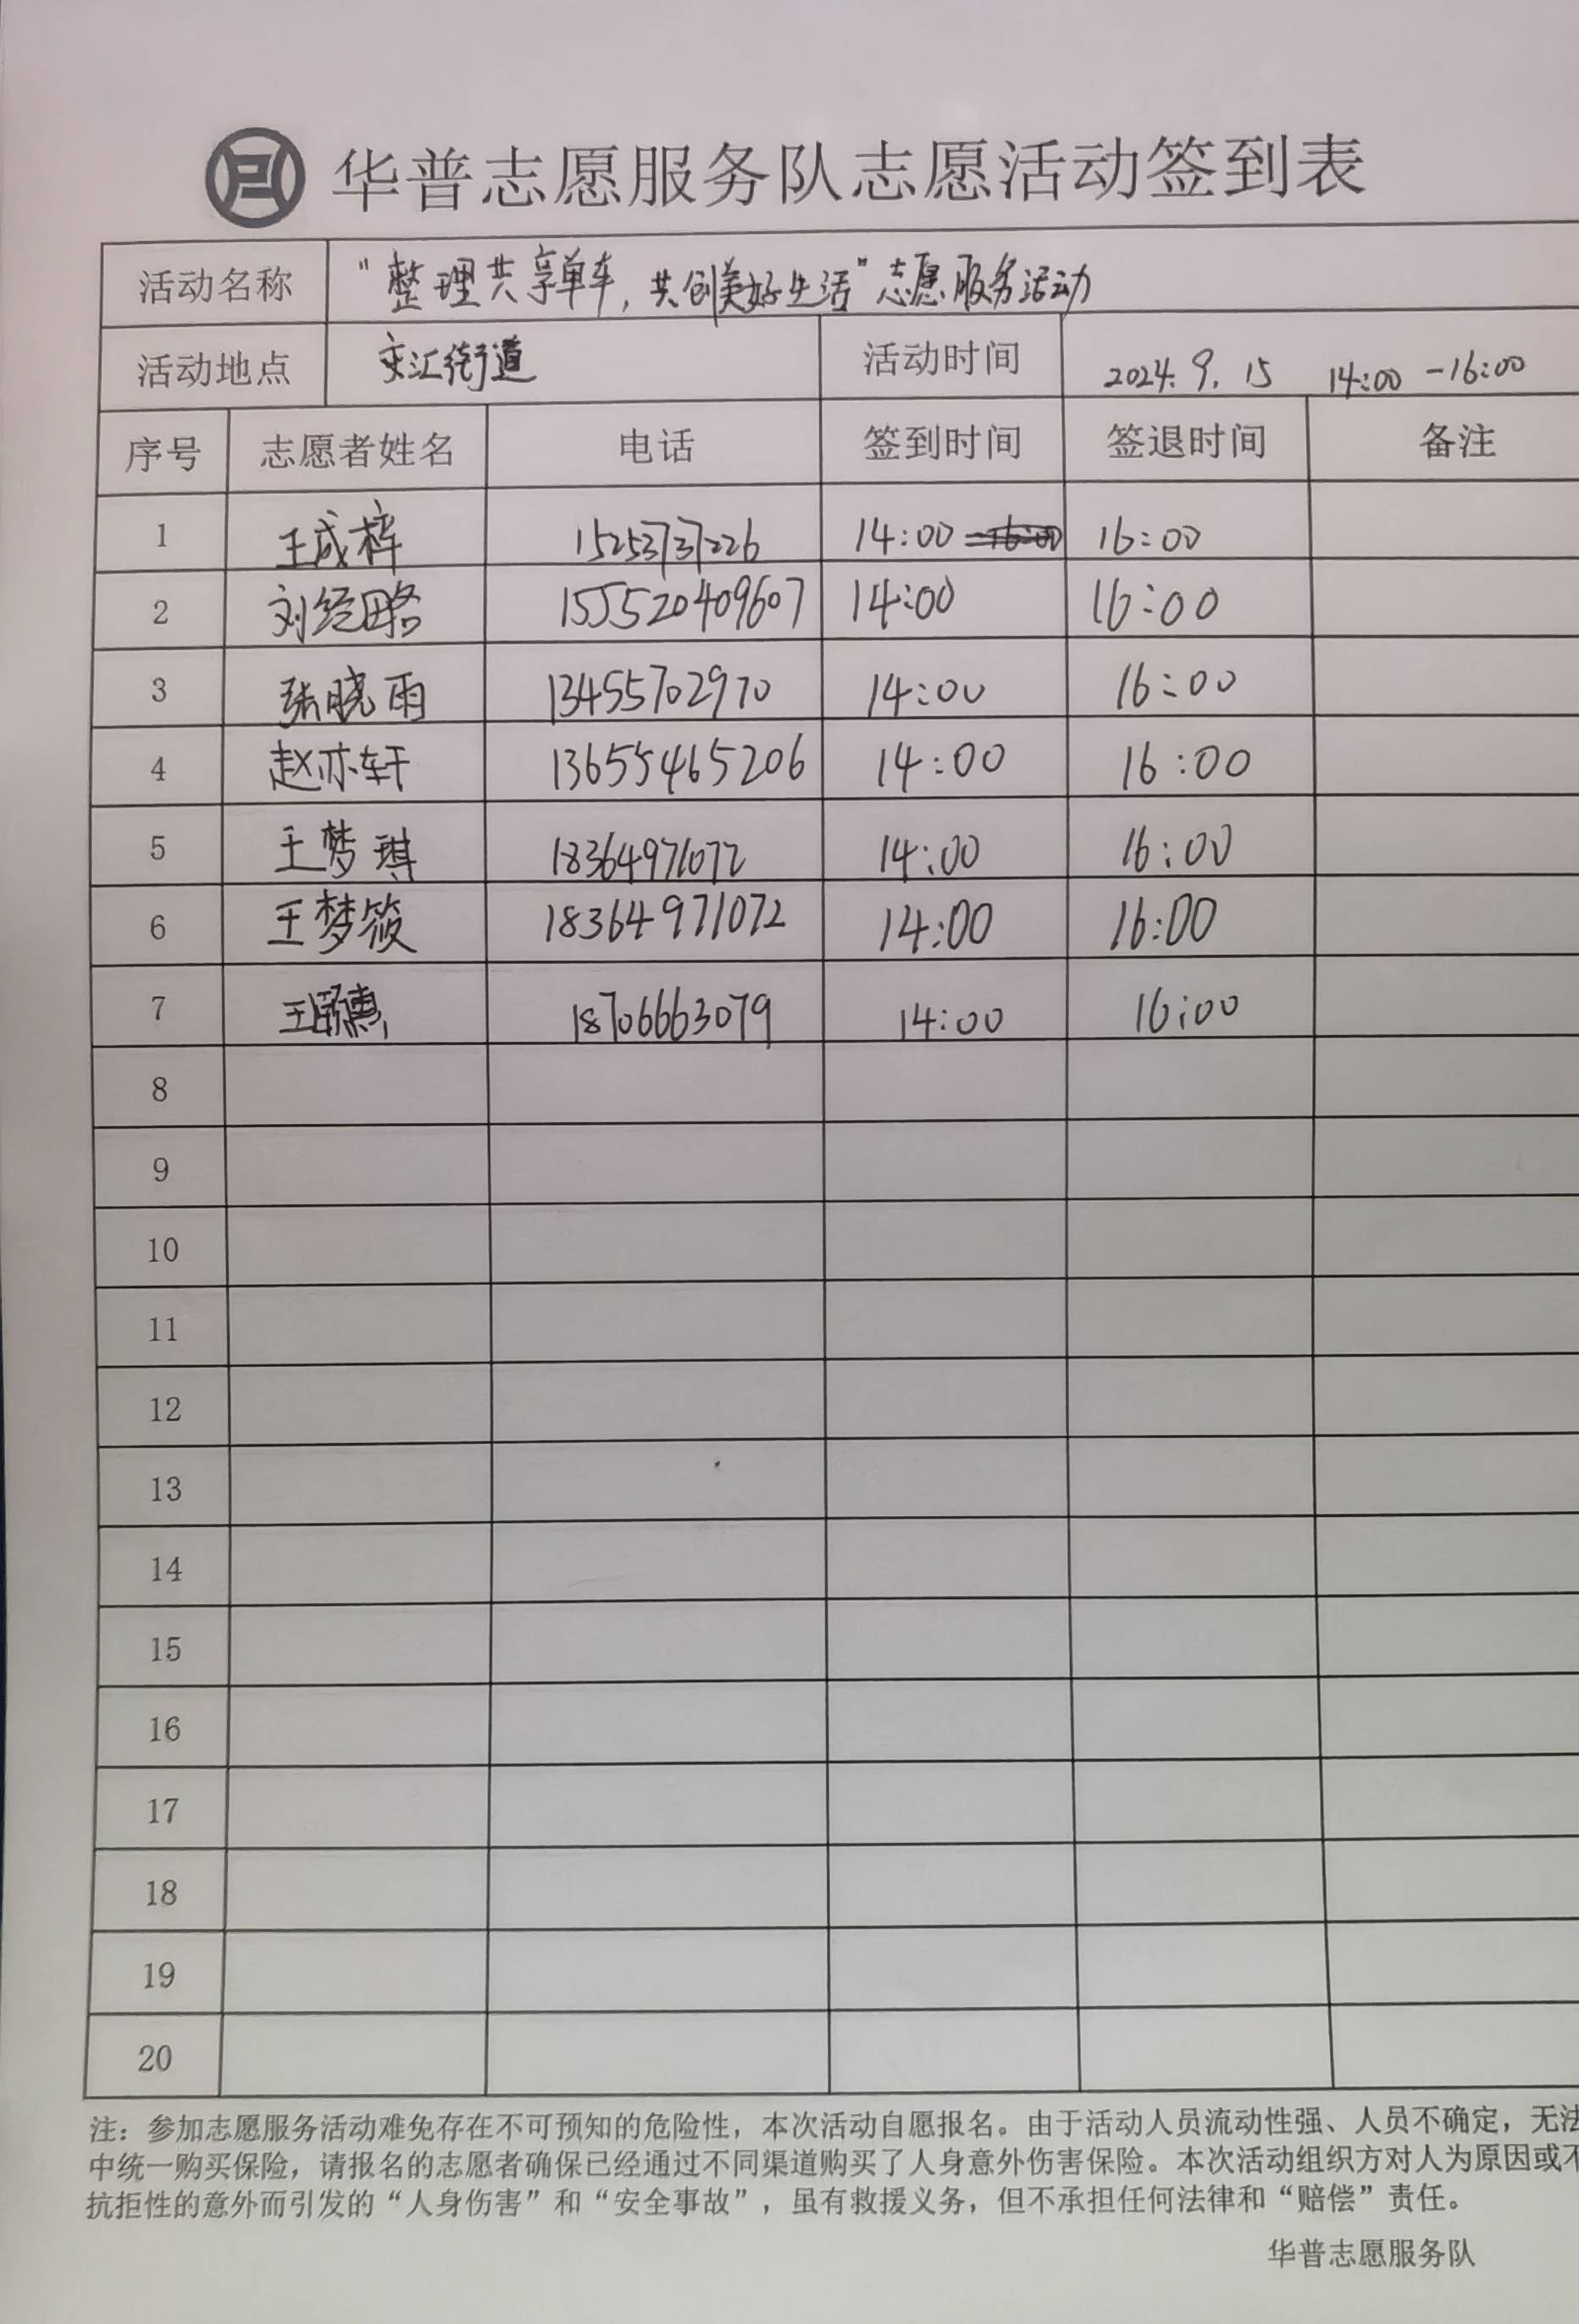 华普志愿服务队志愿活动签到表
活动名称 “整理共享单车，共创美好生活”志愿服务活动
活动地点 文汇街道 活动时间 2024.9.15 14:00-16:00
序号 志愿者姓名 电话 签到时间 签退时间 备注
1 王成梓 15253737226 14:00 16:00
2 刘经略 155520409607 14:00 16:00
3 张晓雨 13455702970 14:00 16:00
4 赵亦轩 13655465206 14:00 16:00
5 王梦琪 18364971072 14:00 16:00
6 王梦筱 18364971072 14:00 16:00
7 18706663079 14:00 16:00
8
9
10
11
12
13
14
15
16
17
18
19
20
注：参加志愿服务活动难免存在不可预知的危险性，本次活动自愿报名。由于活动人员流动性强、人员不确定，无法
中统一购买保险，请报名的志愿者确保已经通过不同渠道购买了人身意外伤害保险。本次活动组织方对人为原因或不
抗拒性的意外而引发的“人身伤害”和“安全事故”，虽有救援义务，但不承担任何法律和“赔偿”责任。
华普志愿服务队